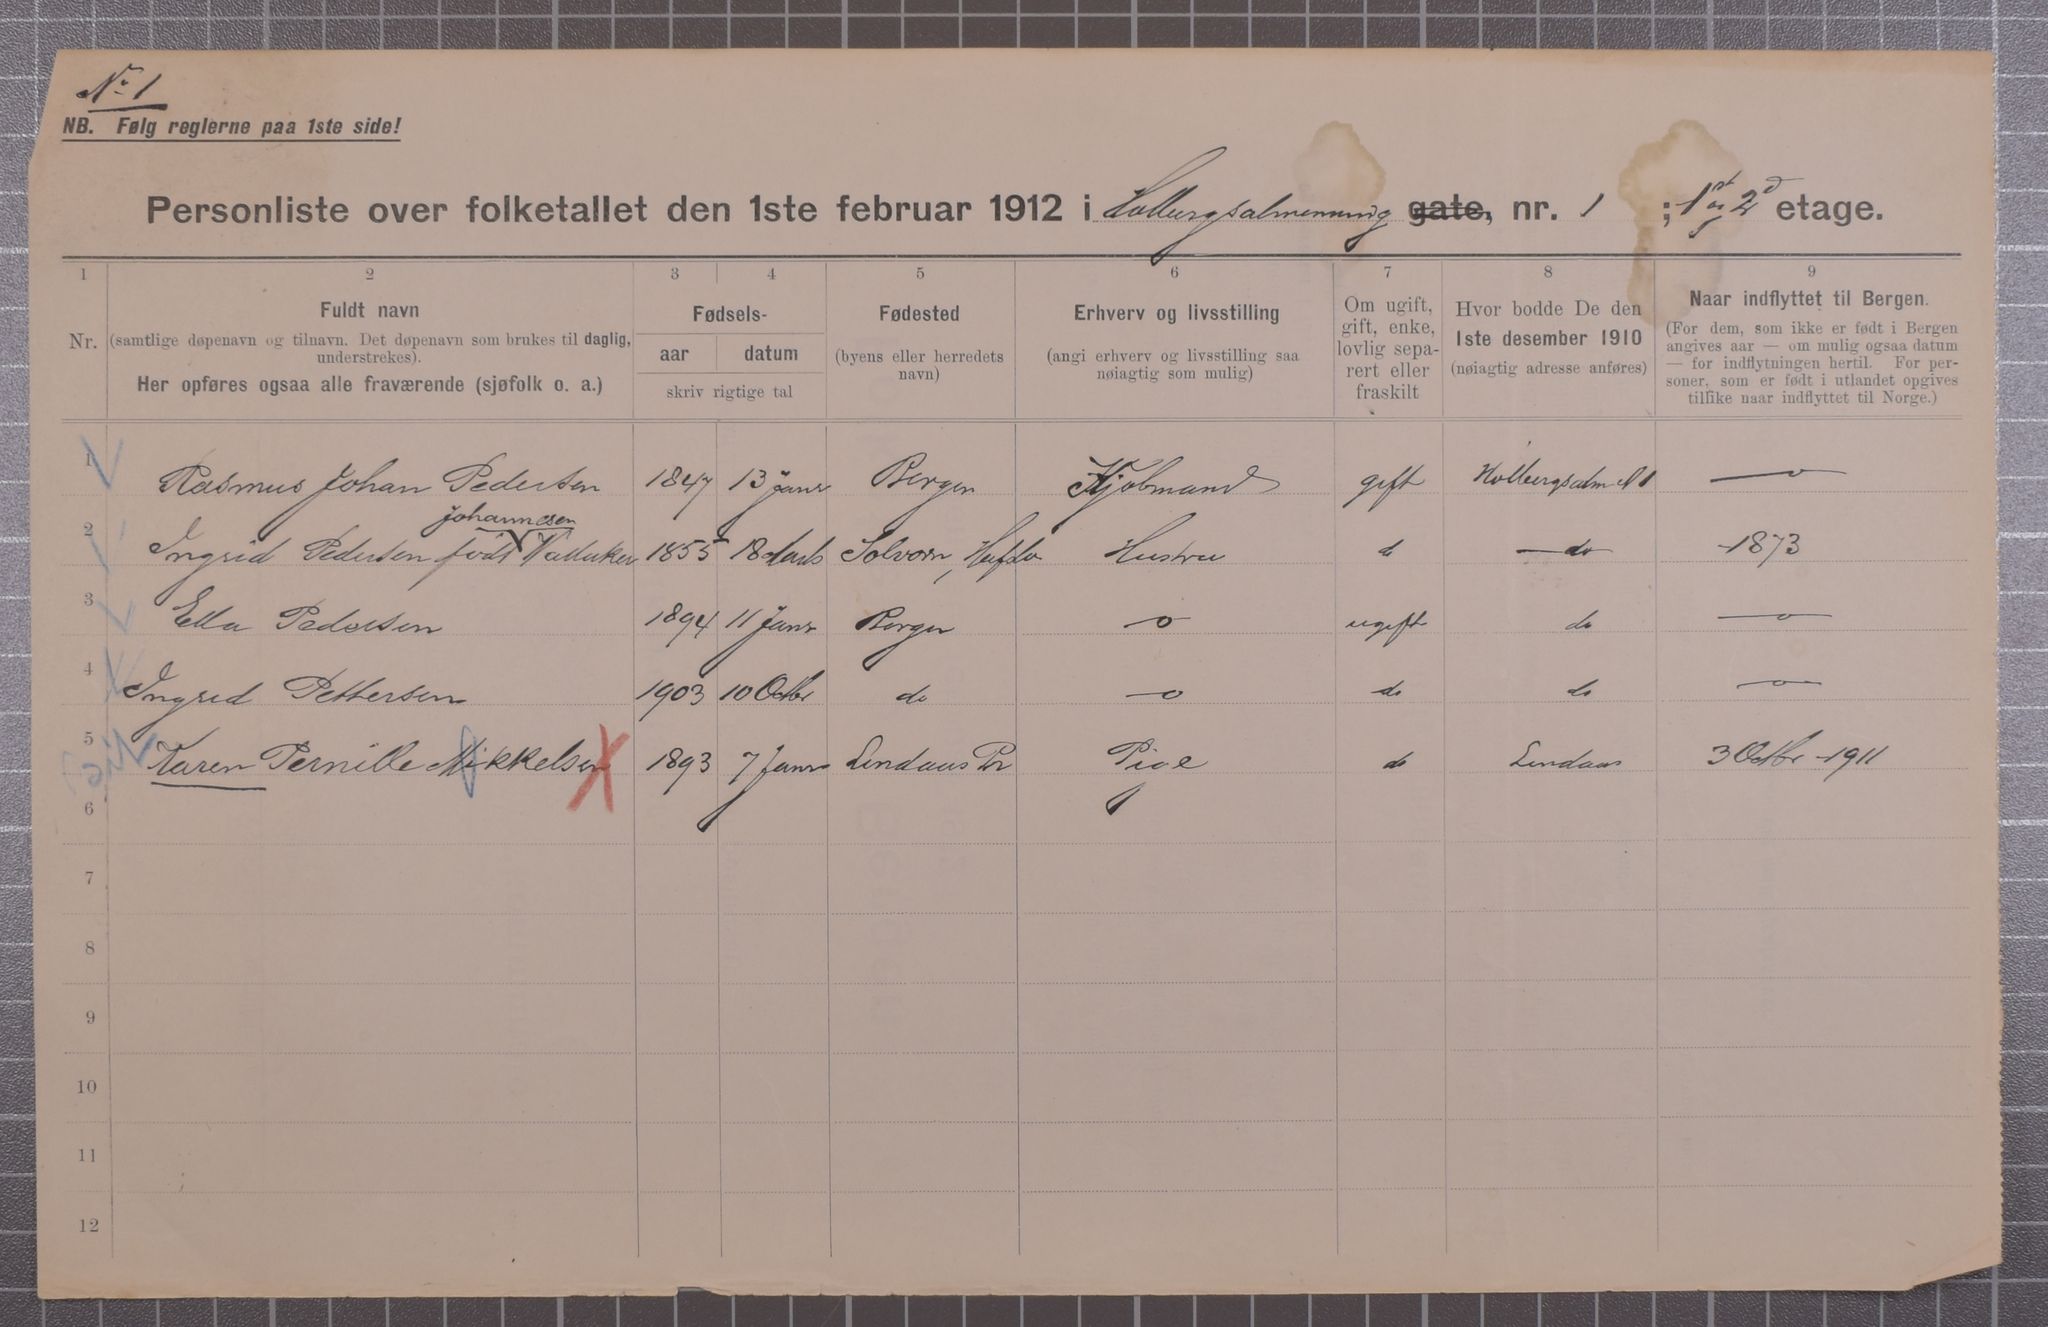 No 1
NB. Følg reglerne paa 1ste side!
Personliste over folketallet den 1ste februar 1912 i Holbergsalmenning gate, nr. 1 ; 1st og 2d etage.
1 2 3 4 5 6 7 8 9
Nr.
Fuldt navn
(samtlige døpenavn og tilnavn. Det døpenavn som brukes til daglig, understrekes).
Her opføres ogsaa alle fraværende (sjøfolk o. a.)
Fødsels-
aar datum
skriv rigtige tal
Fødested
(byens eller herredets navn)
Erhverv og livsstilling
(angi erhverv og livsstilling saa nøiagtig som mulig)
Om ugift, gift, enke, lovlig sepa- rert eller fraskilt
Hvor bodde De den 1ste desember 1910
(nøiagtig adresse anføres)
Naar indflyttet til Bergen.
(For dem, som ikke er født i Bergen angives aar — om mulig ogsaa datum — for indflytningen hertil. For per- soner, som er født i utlandet opgives tilfike naar indflyttet til Norge.)
1 Rasmus Johan Pedersen 1847 13 Janr Bergen Kjøbmand gift Holbergsalm N 1 —o
Johannesen
2 Ingrid Pedersen født 1855 18 Solvorn, Hafslo Hustru do —do— 1873
3 Ella Pedersen 1894 11 Janr Bergen —o ugift do —o—
4 Ingrid Pettersen 1903 10 Octbr do —o do do —o—
5 Karen Pernille Mikkelsen 1893 7 Janr Lindaas Pr Pige do Lindaas 3 Octbr 1911
6
7
8
9
10
11
12